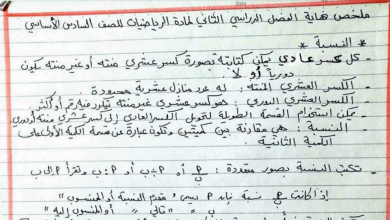 ملخص نهاية الفصل الدراسي الثاني لمادة الرياضيات للصف السادس الأساسي
* النسبة *
- كل كسر عادي يمكن كتابته بصورة كسر عشري منته أو غير منته يكون
دورياً أو لا.
- الكسر العشري المنته : له عدد منازل عشرية محدودة.
- الكسر العشري الدوري : هو كسر عشري غير منته يتكرر فيه رقم أو أكثر.
- يمكن استخدام القسمة الطويلة لتحويل الكسر العادي إلى كسر عشري منته أو دوري.
- النسبة : هي مقارنة بين كميتين وتكون عبارة عن قسمة الكمية الأولى على
الكمية الثانية.
- تكتب النسبة بصور متعددة : أ/ب أو أ:ب أو أ÷ب وتقرأ أ إلى ب
إذا كانت أ/ب نسبة فإن أ يسمى "مقدم النسبة أو المنسوب"
ب = "تالي" أو المنسوب إليه"